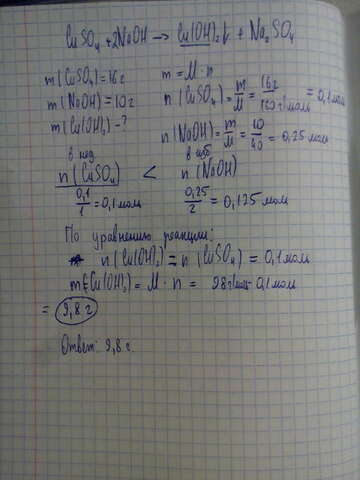 CuSO₄ + 2NaOH → Cu(OH)₂↓ + Na₂SO₄
m(CuSO₄) = 16г m = M · n
m(NaOH) = 10г n(CuSO₄) = m/M = 16г/160г/моль = 0,1моль
m(Cu(OH)₂) - ? n(NaOH) = m/M = 10/40 = 0,25 моль
в нед. в изб
n(CuSO₄) < n(NaOH)
0,1/1 = 0,1 моль 0,25/2 = 0,125 моль
По уравнению реакции:
n(Cu(OH)₂) = n(CuSO₄) = 0,1 моль
m(Cu(OH)₂) = M · n = 98г/моль · 0,1 моль
= 9,8 г
Ответ: 9,8 г.